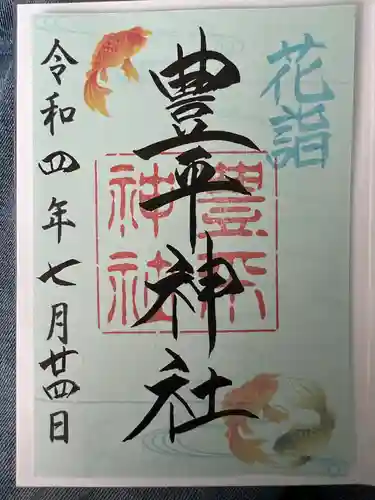 花詣
豊平神社
豊平
神社
令和四年七月廿四日